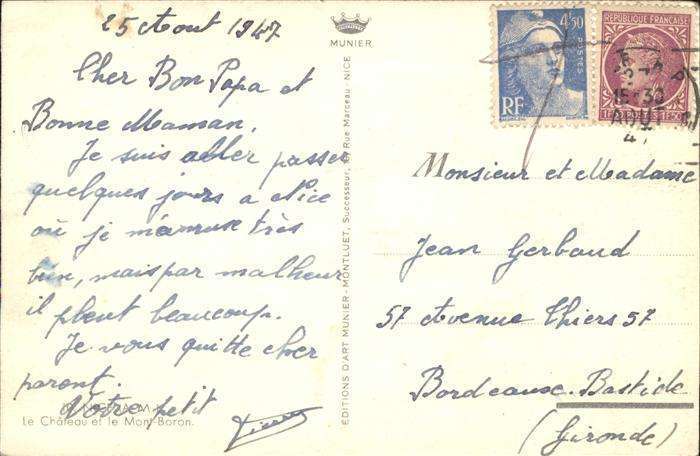 25 Aout 1947
Cher Bon Papa et
Bonne Maman,
Je suis aller passer
quelques jours a Nice
où je m'amuse très
bien, mais par malheur
il pleut beaucoup.
Je vous quitte cher
parent.
Votre petit
Pierre
Le Château et le Mont-Boron.
MUNIER
EDITIONS D'ART MUNIER - MONTLUET, Successeur, Rue Marceau - NICE
4f50
POSTES
RF
REPUBLIQUE FRANÇAISE
1F POSTES 1F
15-30
AOUT
Monsieur et Madame
Jean Gerbaud
57 Avenue Thiers 57
Bordeaux-Bastide
(Gironde)